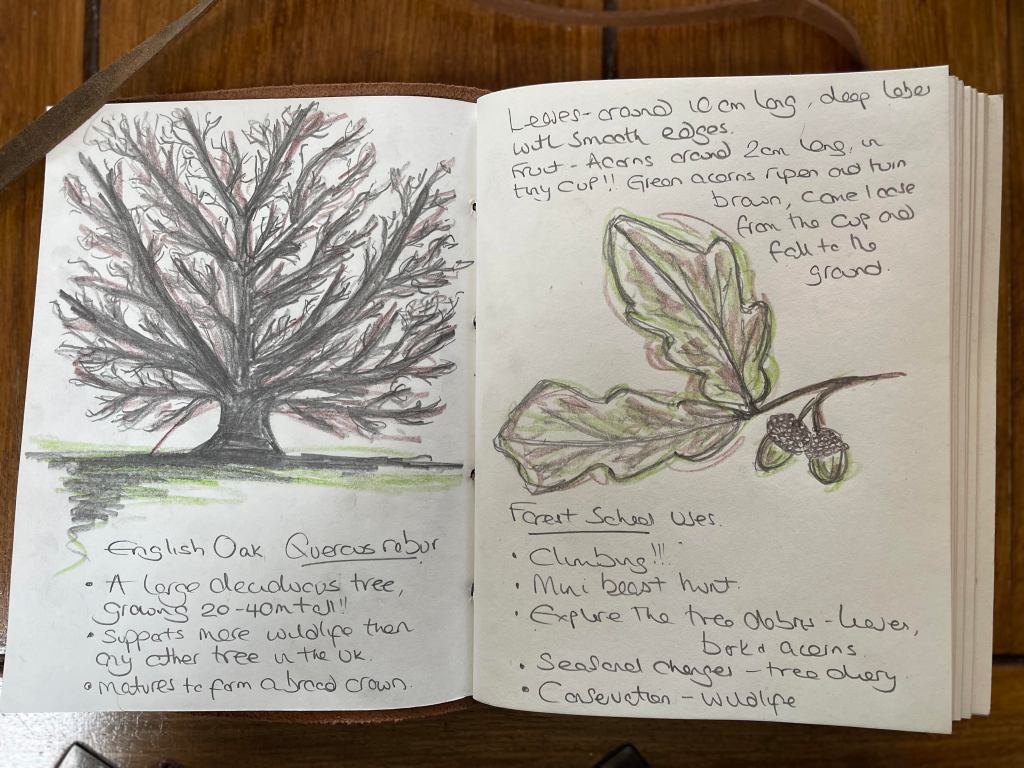 English Oak Quercus robur
• A large deciduous tree,
growing 20-40m tall!!
• Supports more wildlife than
any other tree in the UK.
• Matures to form a broad crown.
Leaves - around 10cm long, deep lobes
with smooth edges.
Fruit - Acorns around 2cm long, in
tiny cup!! Green acorns ripen and turn
brown, come loose
from the cup and
fall to the
ground.
Forest School Uses.
• Climbing!!!
• Mini beast hunt.
• Explore The tree debris - leaves,
bark & acorns.
• Seasonal changes - tree diary.
• Conservation - wildlife